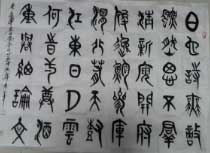 白也詩無敵
飄然思不群
清新庾開府
俊逸鮑參軍
渭北春天樹
江東日暮雲
何時一尊酒
重與細論文